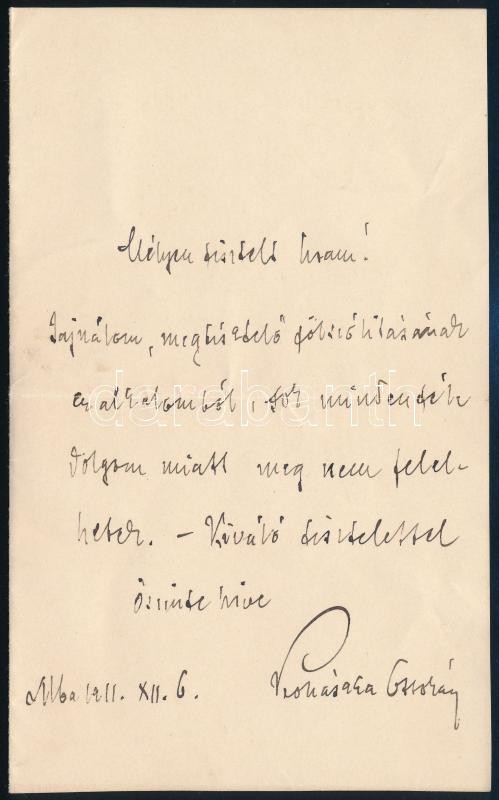 Mélyen tisztelt Uram!
Sajnálom, megtisztelő fölszólításának
ez alkalomból, sok mindenféle
dolgom miatt meg nem felel-
hetek. – Kiváló tisztelettel
őszinte híve
Alba 1911. XII. 6. Prohászka Ottokár
darabanth